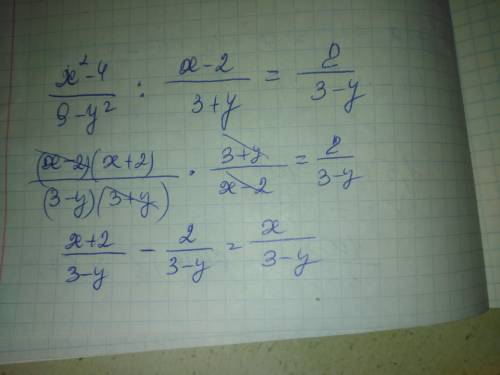 x²-4 / 9-y² : x-2 / 3+y = 2 / 3-y
(x-2)(x+2) / (3-y)(3+y) · 3+y / x-2 = 2 / 3-y
x+2 / 3-y - 2 / 3-y = x / 3-y